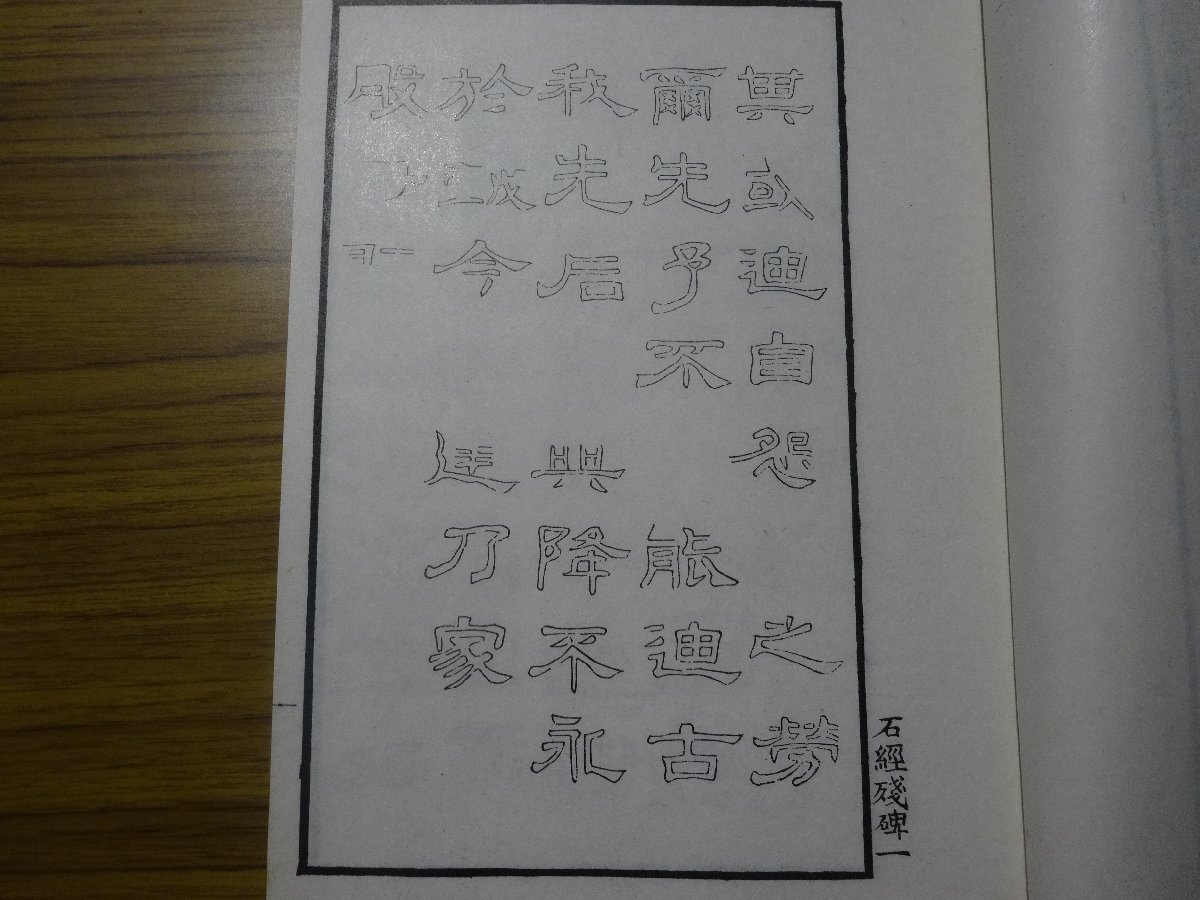 其或迪自怨 之勞
爾先予不 能迪古
我先后 興降不永
於戲今 建乃家
般
石經殘碑一